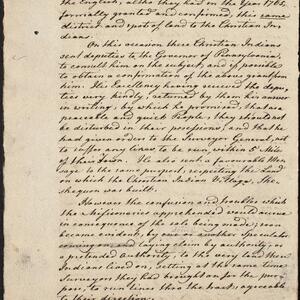 the English, altho they had in the Year 1765,
formally granted and confirmed, this same
district and spot of land to the Christian In-
dians.
On this occasion these Christian Indians
sent deputies to the Governor of Pensylvania,
to consult him on the subject and if possible
to obtain a confirmation of the above grant from
him. His Excellency having received the depu-
ties very kindly, returned by them his answer
in writing, by which he promised, that as a
peaceable and quiet People, they should not
be disturbed in their possessions; and that he
had given orders to the Surveyor General, not
to suffer any lines to be run, within 5 Miles
of their Town. He also sent a favourable Mes-
sage to the same purport, respecting the Land
on which the Christian Indian Village, She-
shequon was built.
However the confusion and troubles which
the Missionaries apprehended would accrue
in consequence of the sale being made, soon
became evident, by one or another Speculator
coming on and laying claim by authority, or
a pretended Authority, to the very land these
Indians lived on; setting at the same time
Surveyors they had brought on for the pur-
pose, to run lines thro the tract agreeable
to their direction.